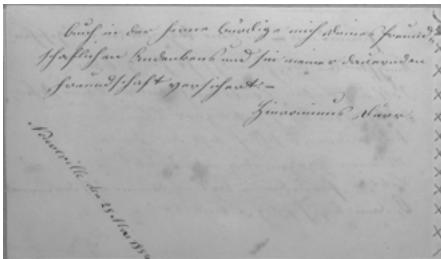 Auch in der Ferne würdige mich deines freund-
schaftlichen Andenkens und sei meiner dauernden
Freundschaft versichert. –
Hieronimus
Neuveville den 28 Mai